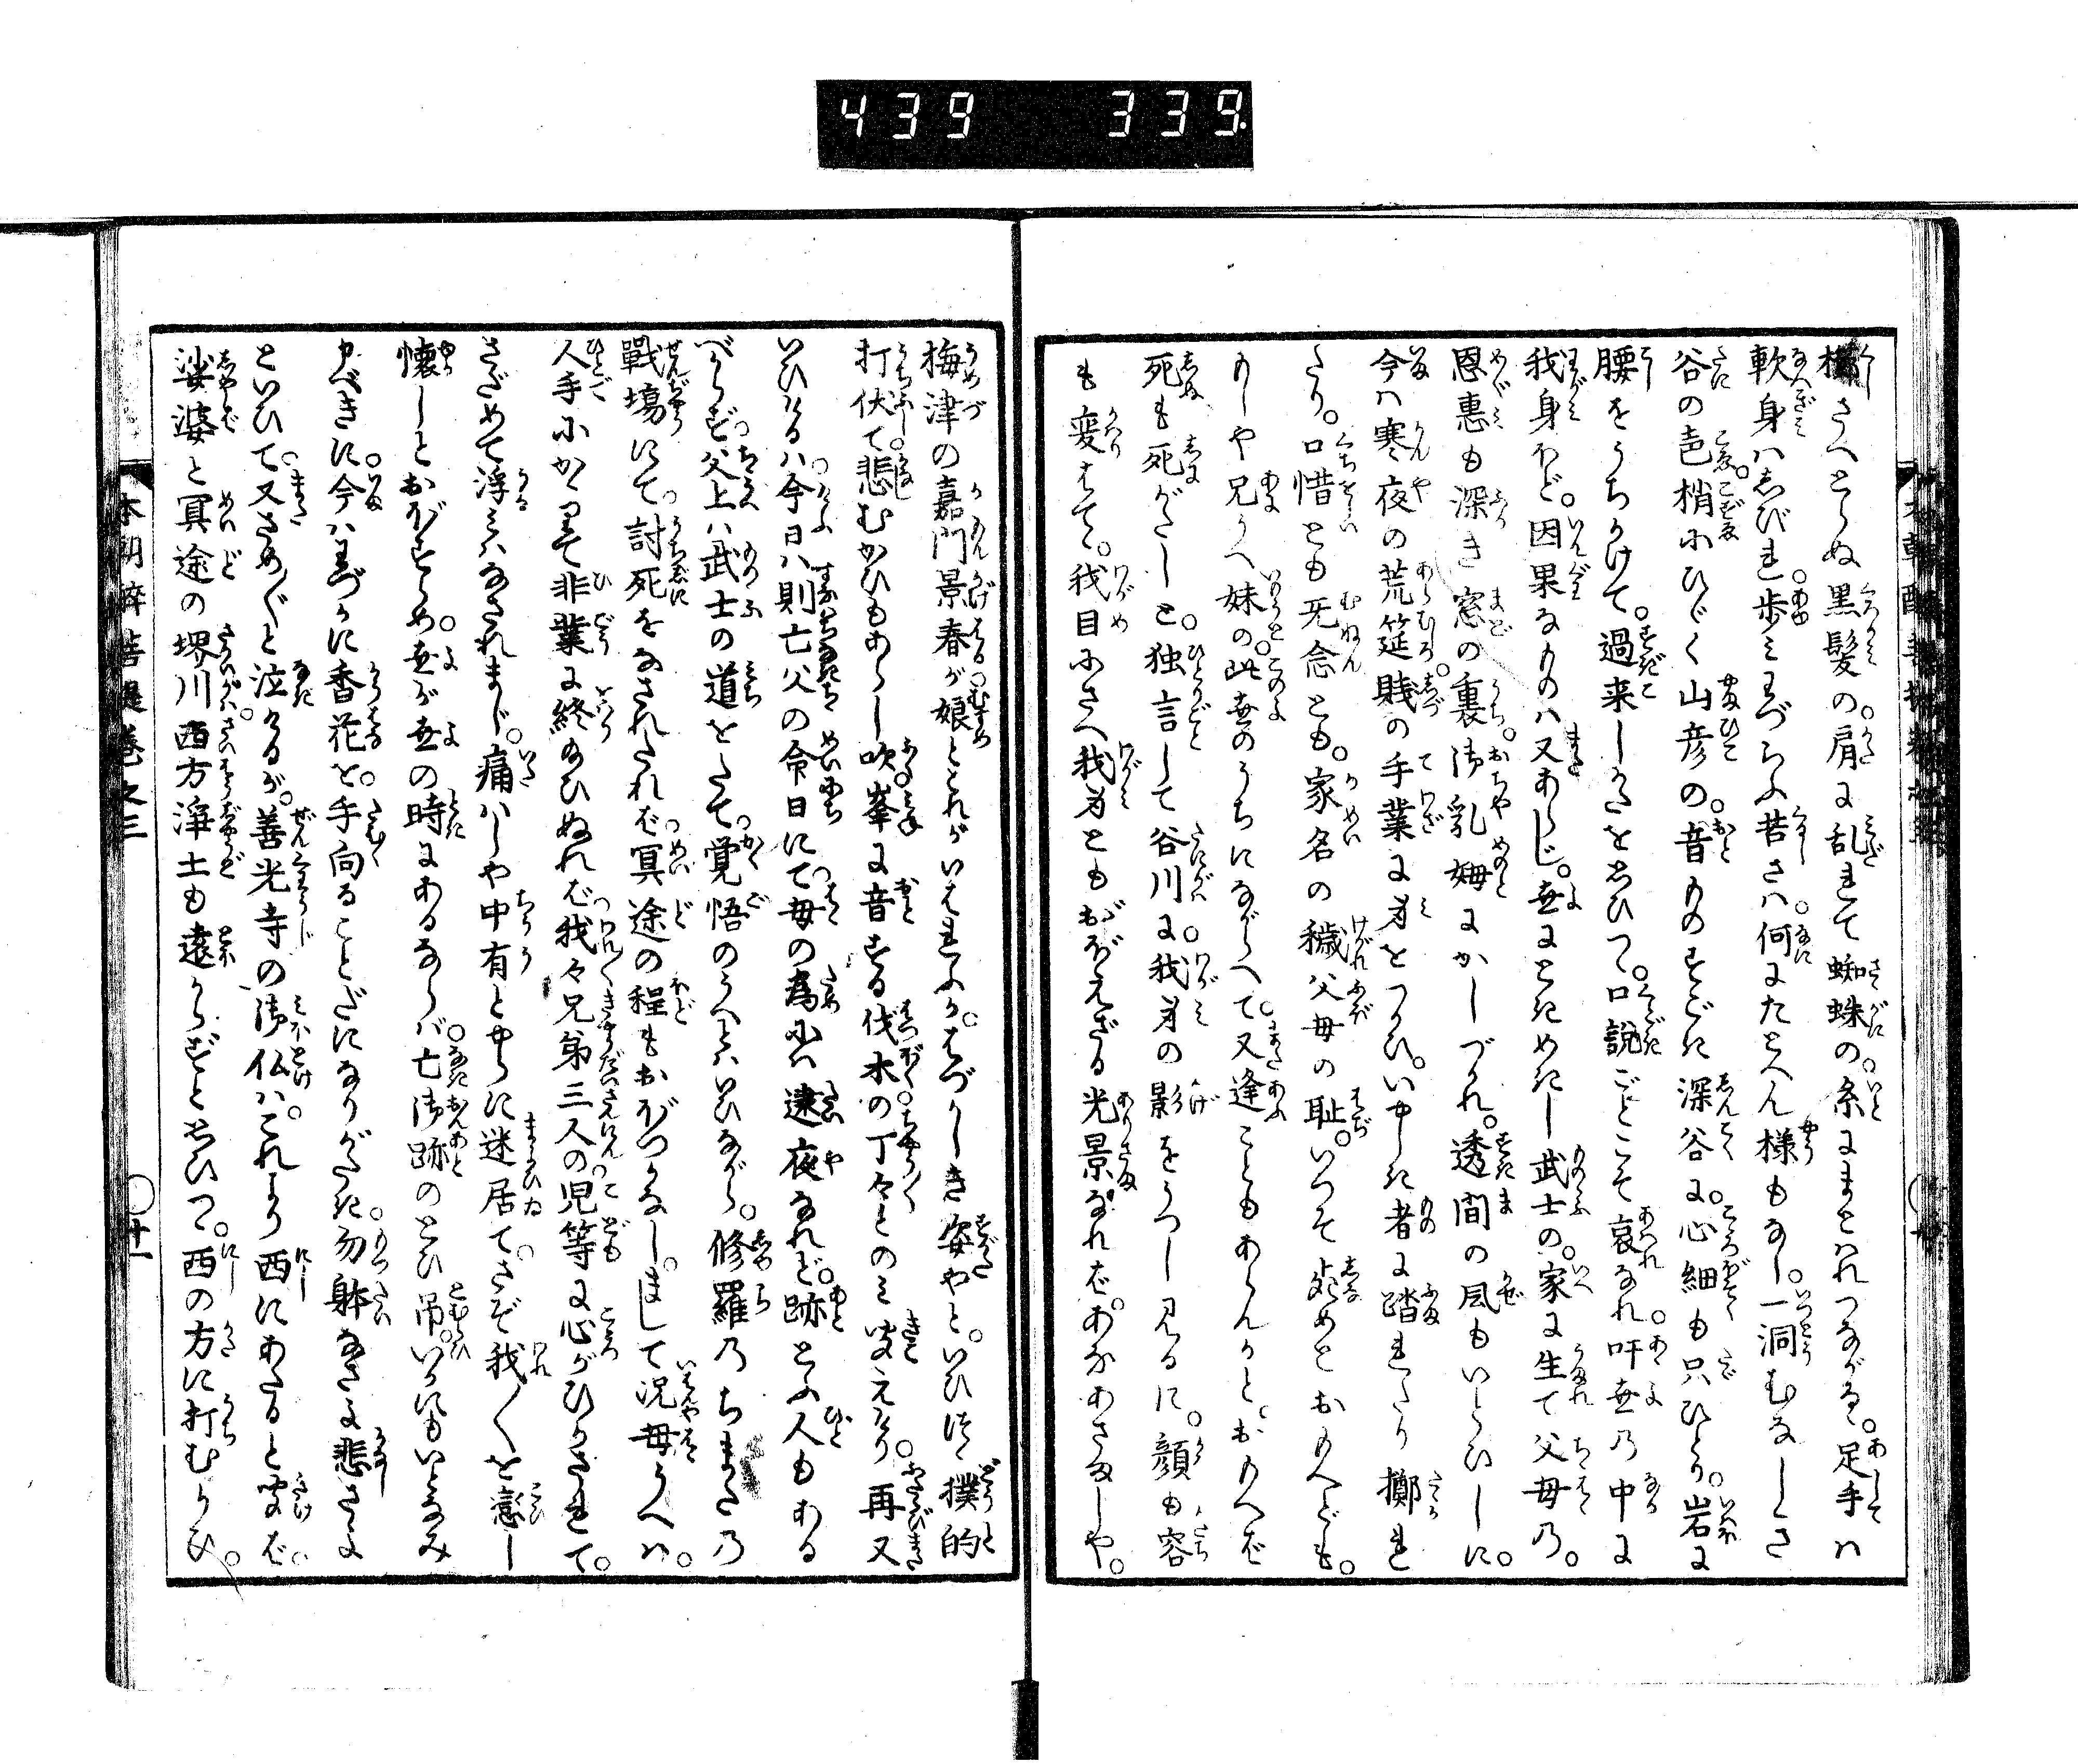 439 339
櫛さへとらぬ黒髪の。肩に乱れて蜘蛛の。糸にまとはれつながるゝ。足手ハ
軟身ハしびれ。歩ミわづらふ苦さハ。何にたとへん様もなし。一洞むなしくさ
谷の声。梢にひゞく山彦の。音ものすごき深谷に。心細も只ひとり。岩に
腰をうちかけて。過来しかたをおもひつゝ。口説ごとこそ哀なれ。吁世の中に
我身ほど。因果なものハ又あらじ。世にときめきし武士の。家に生て父母の。
恩恵も深き窓の裏。御乳姆にかしづかれ。透間の風もいとひしに。
今ハ寒夜の荒筵。賤の手業に身をつかひ。いやしき者に踏れたり擲れ
たり。口惜とも無念とも。家名の穢父母の恥。いつそ死めとおもへども。
もしや兄うへ妹の。此世のうちにながらへて。又逢こともあらんかと。おもへば
死も死がたしと。独言して谷川に。我身の影をうつし見るに。顔も容
も変はてゝ。我目にさへ我身ともおぼえざる光景なれば。あなあさましや。
梅津の嘉門景春が娘とたれがいはれふか。はづかしき姿やと。いひつゝ撲的
打伏て。悲むかひもあらし吹。峯に音する伐木の丁々とのミ聞えけり。再又
いひけるハ。今日ハ則亡父の命日にて。母の為にハ逮夜なれど。跡とふ人もある
べからず。父上ハ武士の道をたて。覚悟のうへとハいひながら。修羅のちまたの
戦場にて。討死をなされたれバ。冥途の程もおぼつかなし。まして況母うへハ。
人手にかゝりて非業に終給ひぬれバ。我々兄弟三人の。児等に心がひかされて。
さだめて浮ミハなされまじ。痛ハしや中有とやらに迷居て。さぞ我〳〵を恋し
懐しとおぼすらめ。世が世の時にあるならバ。亡御跡のとひ吊。いかにもいとなみ
申べきに。今ハわづかに香花を。手向ることだになりがたき。勿躰なさよ悲さよ
といひて。又さめ〴〵と泣けるが。善光寺の御仏ハ。これより西にあたると聞バ。
娑婆と冥途の堺川。西方浄土も遠からずとおもひつゝ。西の方に打むかひ。
本朝酔菩提巻之三
〇廿一